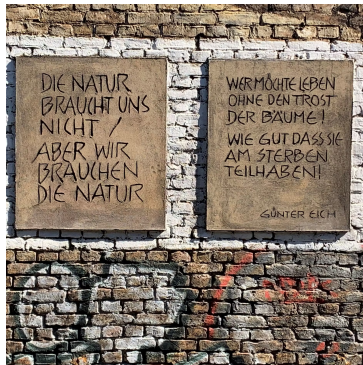 DIE NATUR
BRAUCHT UNS
NICHT /
ABER WIR
BRAUCHEN
DIE NATUR
WER MÖCHTE LEBEN
OHNE DEN TROST
DER BÄUME!
WIE GUT DASS SIE
AM STERBEN
TEILHABEN!
GÜNTER EICH